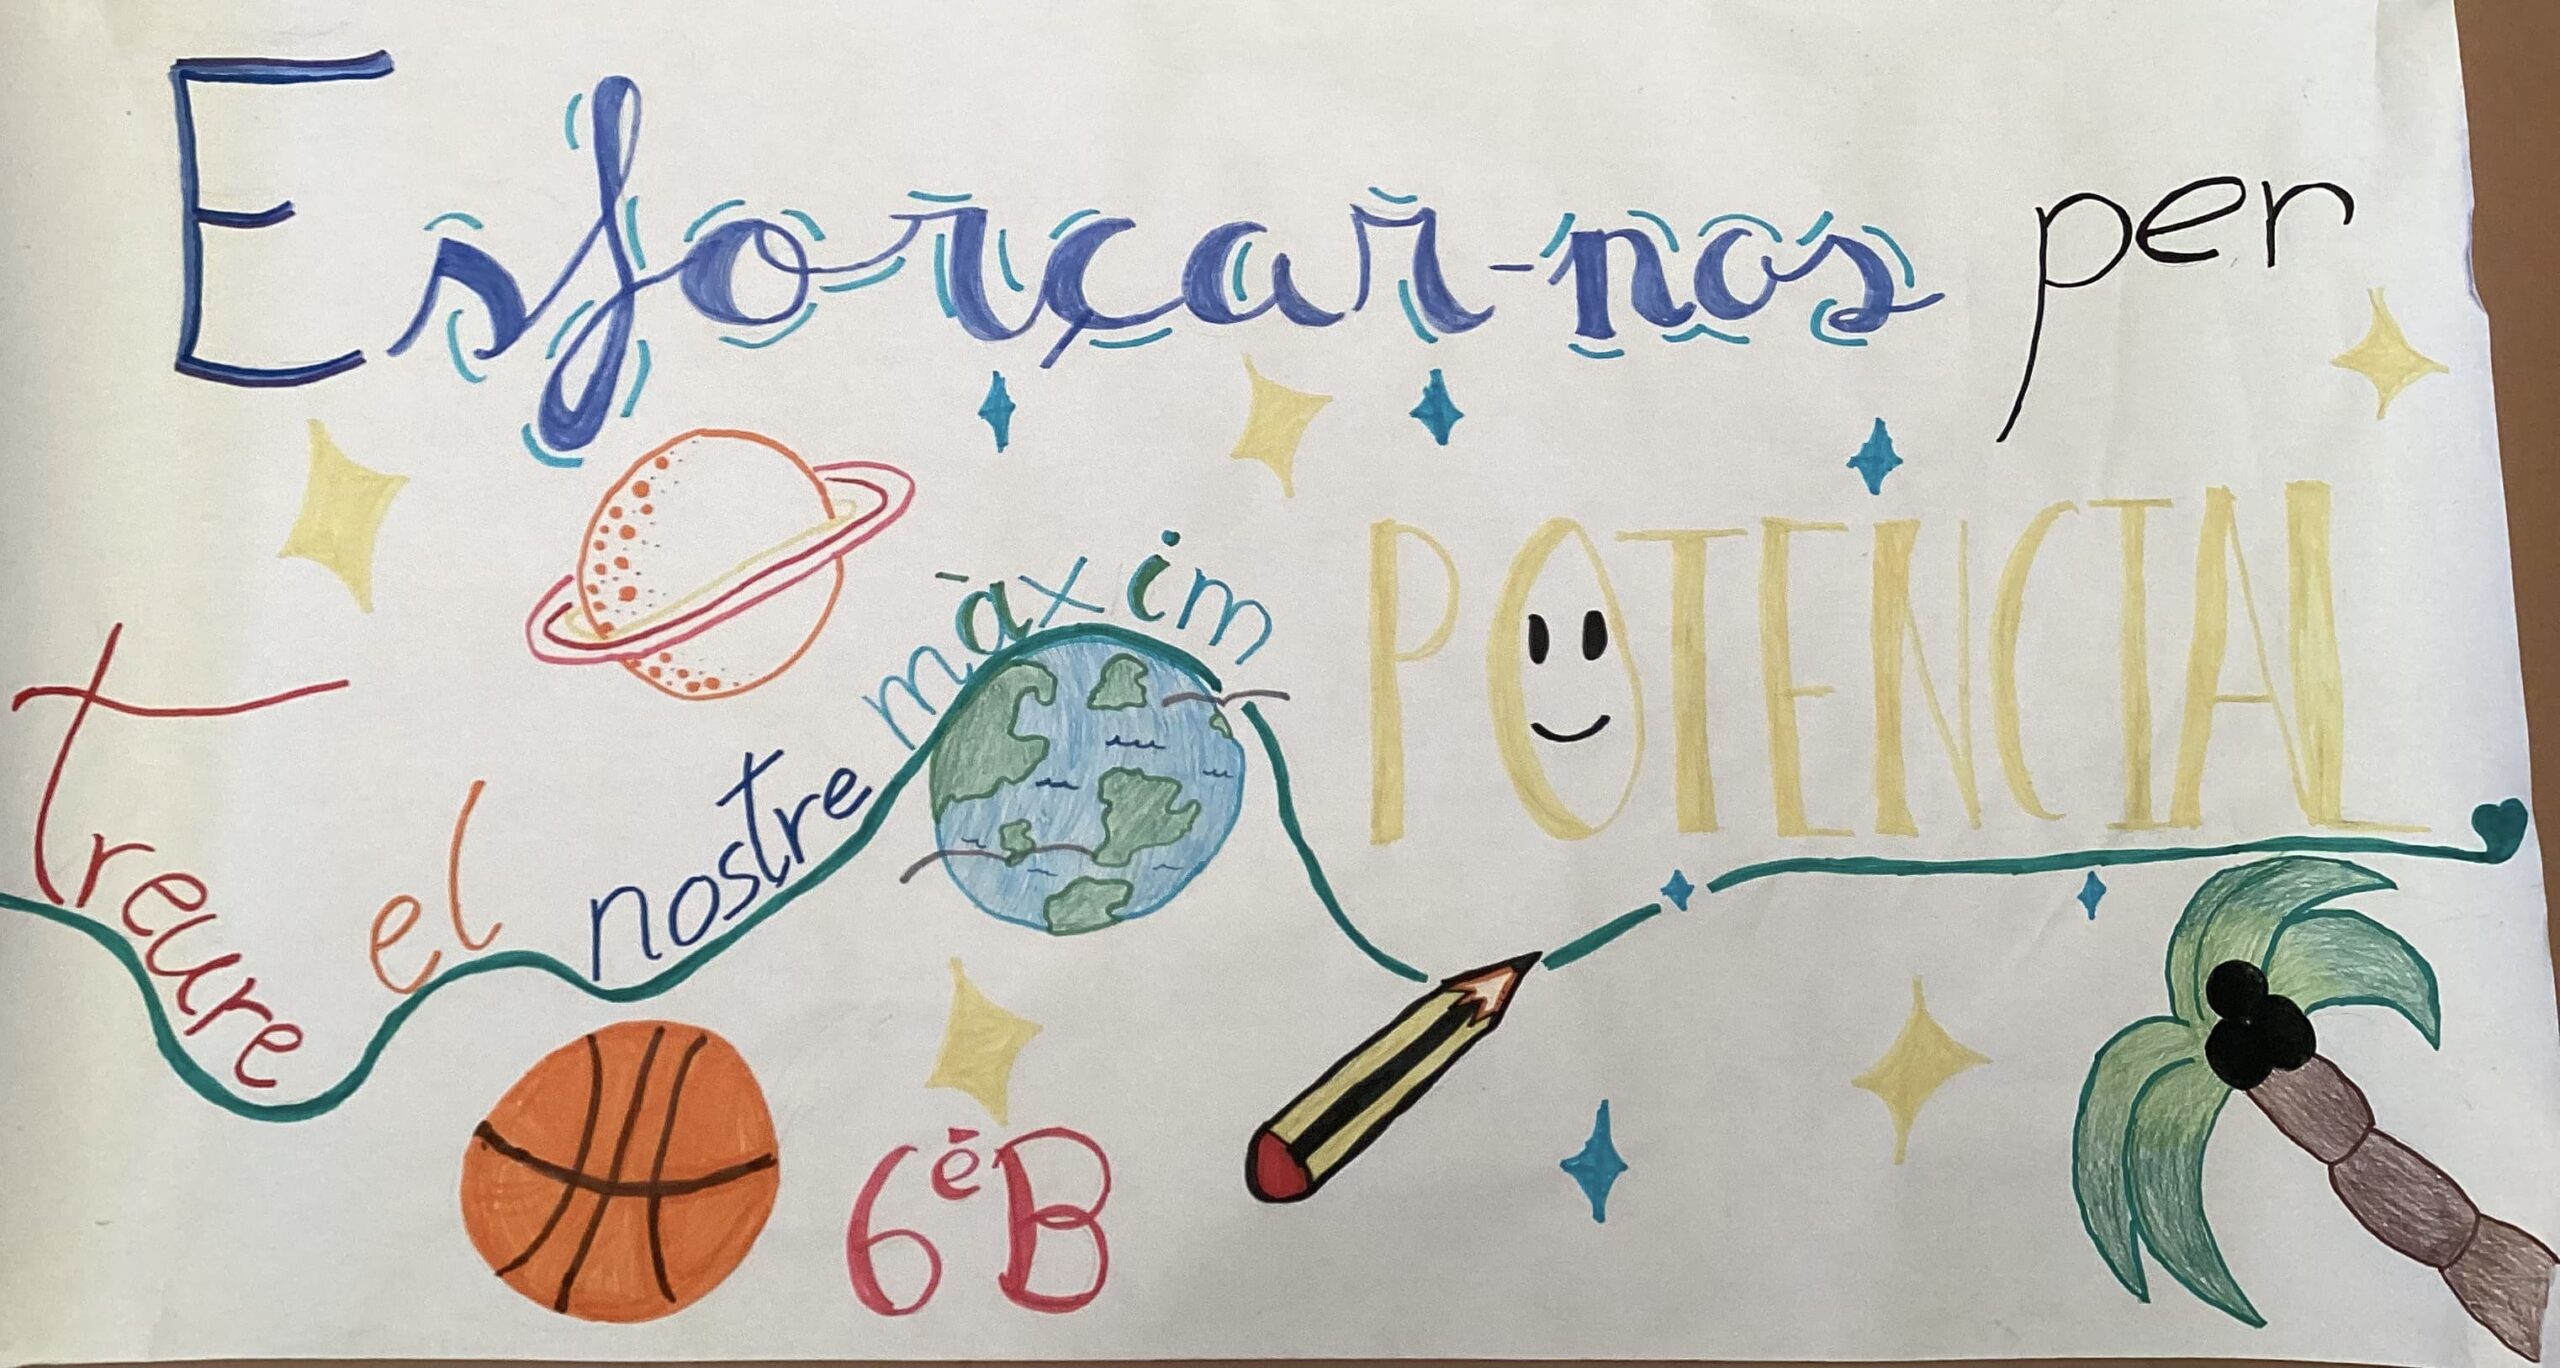 Esforçar-nos per
treure el nostre màxim POTENCIAL
6èB